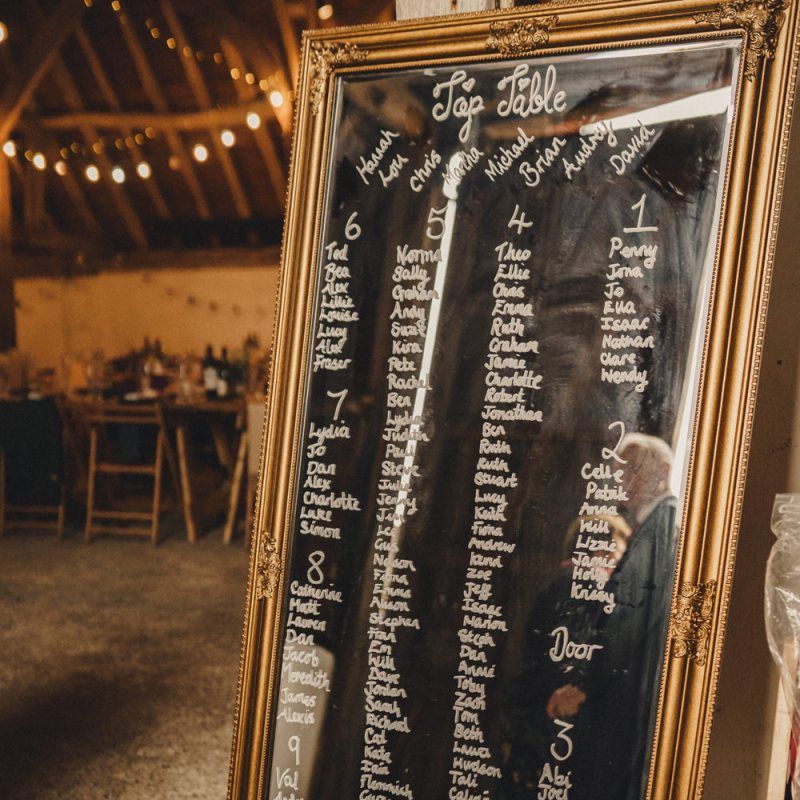 Top Table
Hannah
Lou
Chris
Martha
Michael
Brian
Audrey
David
6
Tod
Bea
Alex
Lillie
Louise
Lucy
Alex
Fraser
7
Lydia
Jo
Dan
Alex
Charlotte
Luke
Simon
8
Catherine
Matt
Lauren
Dan
Jacob
Meredith
James
Alexis
9
Val
5
Norma
Sally
Graham
Andy
Suzi
Kira
Pete
Rachel
Ben
Lydia
Judith
Paul
Steve
Jenny
Nelson
Emma
Alison
Stephen
Fran
Em
Will
Dave
Jordan
Sarah
Richard
Cat
Kate
4
Theo
Ellie
Chris
Emma
Ruth
Graham
Jamie
Charlotte
Robert
Jonathan
Ben
Ruth
Ruth
Stuart
Lucy
Kate
Fiona
Andrew
Kend
Zoe
Jeff
Isaac
Marion
Steph
Dan
Annie
Toby
Zach
Tom
Beth
Laura
Hudson
Tali
1
Penny
Jona
Jo
Ella
Isaac
Nathan
Clare
Wendy
2
Patrik
Anna
Will
Lizzie
Jamie
Holly
Kristy
Door
3
Abi
Joel